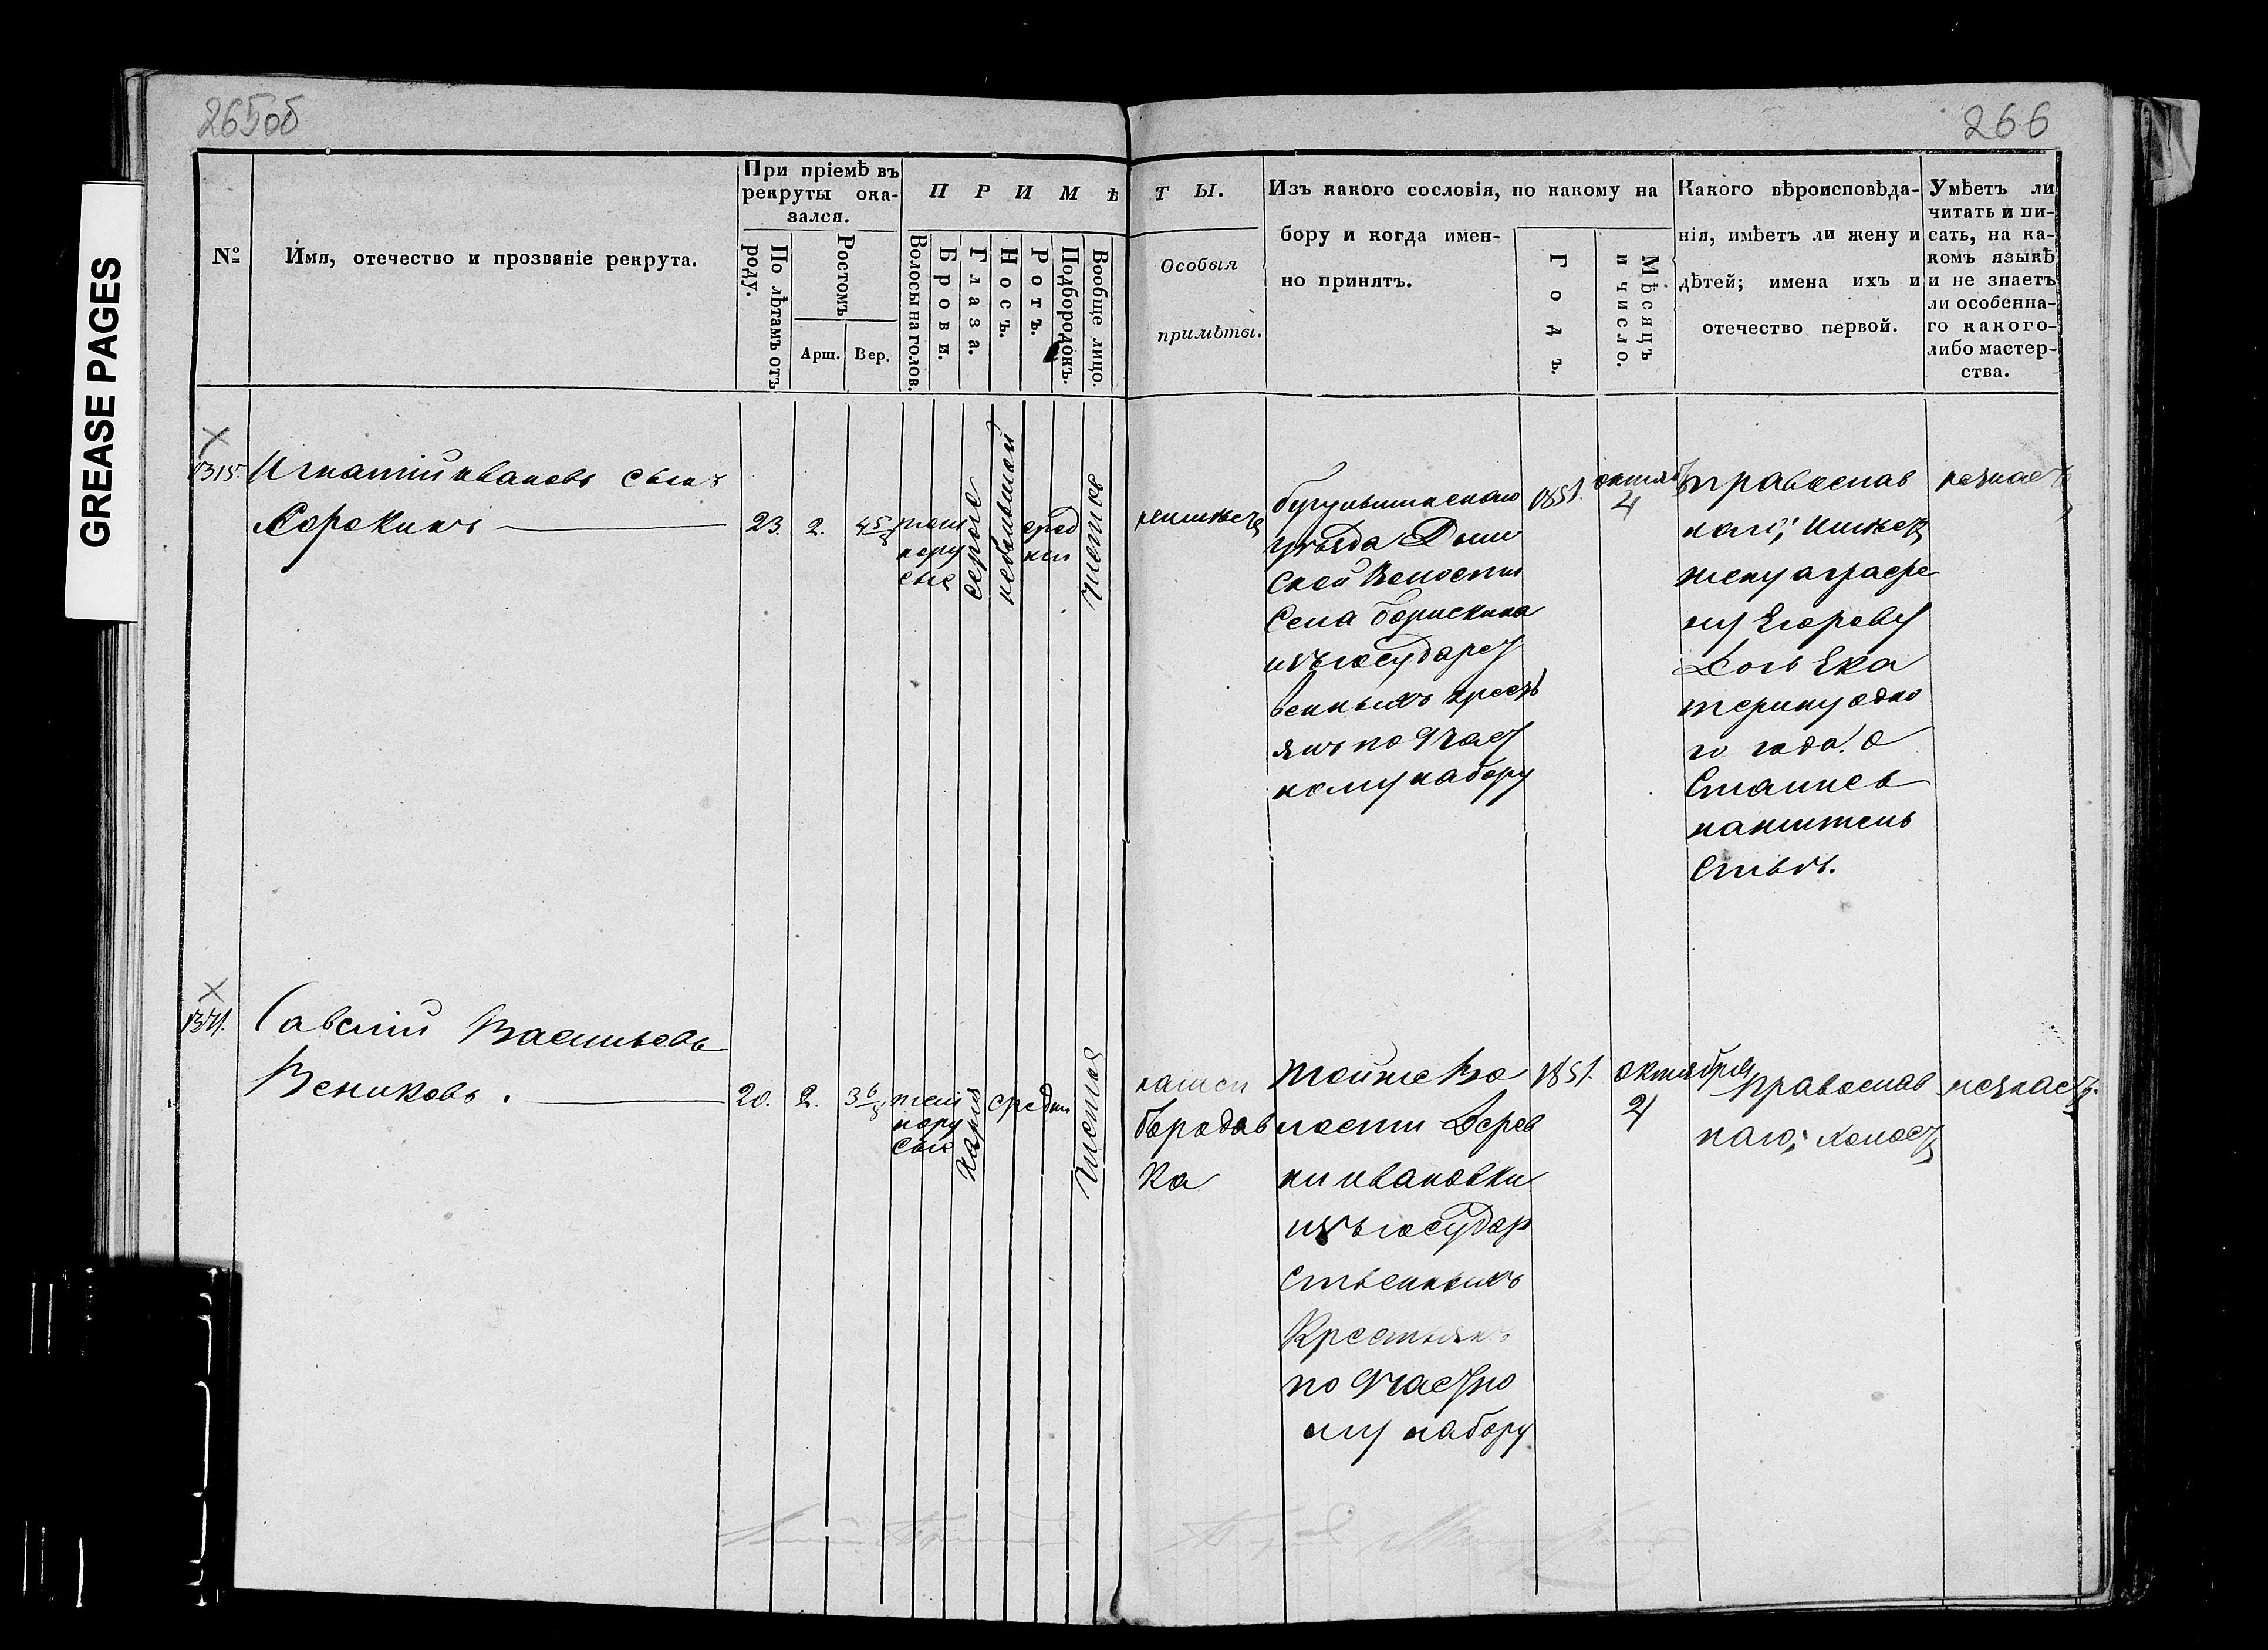 265об
266
GREASE PAGES
№
Имя, отечество и прозваніе рекрута.
При пріемѣ въ
рекруты ока-
зался.
По лѣтамъ отъ
роду.
Ростомъ
Арш.
Вер.
ПРИМѢТЫ.
Волосы на голов.
Брови.
Глаза.
Носъ.
Ротъ.
Подбородокъ.
Вообще лицо.
Особыя
примѣты.
Изъ какого сословія, по какому на
бору и когда имен-
но принятъ.
Годъ.
Мѣсяцъ
и число.
Какого вѣроисповѣда-
нія, имѣетъ ли жену и
дѣтей; имена ихъ и
отечество первой.
Умѣетъ ли
читать и пи-
сать, на ка-
комъ языкѣ
и не знаетъ
ли особенна-
го какого-
либо мастер-
ства.
1315.
Игнатій Ивановъ сынъ
Сорокинъ
23.
2.
4 5/8
темн
нору
сые
серые
небольшой
сред
ній
чистое
неимѣетъ
бугульминскаго
уѣзда
ской Волости
Села борискина
изъ государст
венныхъ кресть
янъ по Част
ному набору
1851.
октяб
4
православ
наго; имѣетъ
жену аграфе
ну Егорову
Дочь Ека
терину одно
го года. о
стался
на жительс
ствѣ.
незнаетъ
Савелій Васильевъ
Вениковъ.
20.
2.
3 6/8
темн
нору
сые
карія
средн
чистое
бородав
ка
Тойже Во
лости Дерев
ни ивановки
изъ государ
ственныхъ
Крестьянъ
по Частно
му набору
1851.
октября
4
православ
наго; холостъ
незнаетъ.